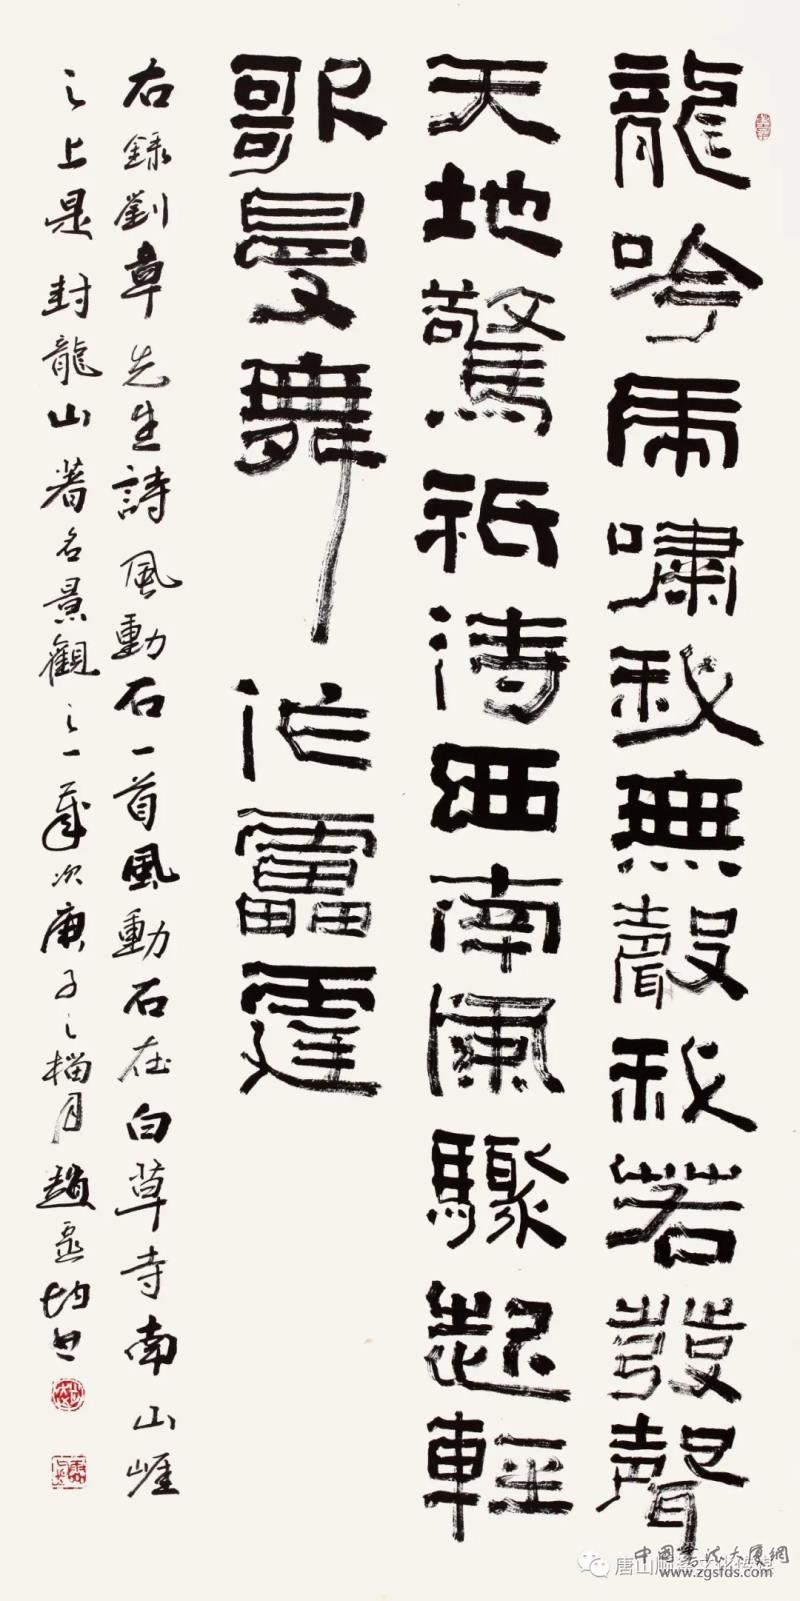 龍吟虎嘯我無聲我若發聲
天地驚祇待西南風驟起輕
歌曼舞作雷霆
右錄劉章先生詩風動石一首風動石在白草寺南山崖
之上是封龍山著名景觀之一歲次庚子之榴月趙均書
中國書法大廈網
唐山文化传媒
www.zgsfds.com